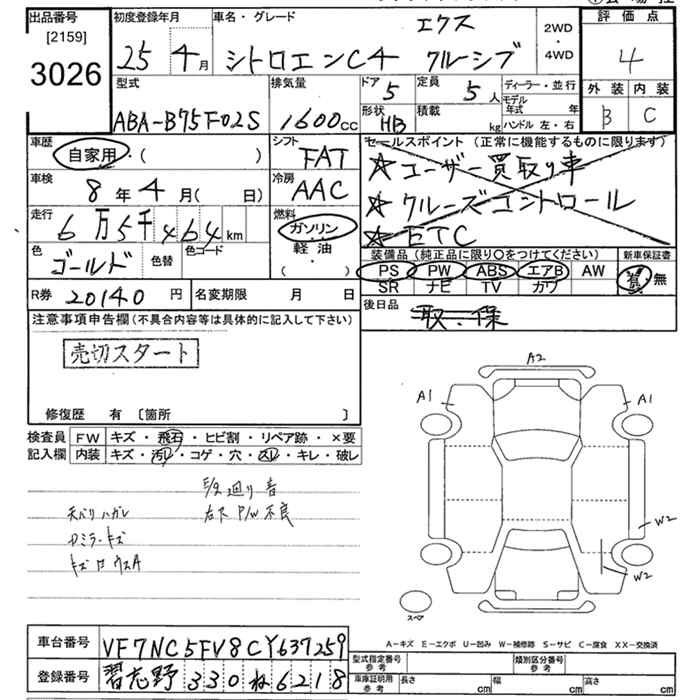 出品番号 [2159] 3026
初度登録年月 25年4月
車名・グレード シトロエンC4 エクスクルーシブ
2WD・4WD
評価点 4
外装 B 内装 C
型式 ABA-B75F02S
排気量 1600cc
ドア 5
形状 HB
定員 5人
積載 kg
ディーラー・並行
モデル年式 年
ハンドル 左・右
車歴 自家用・( )
車検 8年4月( 日)
走行 6万5千464km
色 ゴールド 色替 色コード
シフト FAT
冷房 AAC
燃料 ガソリン・軽油
セールスポイント (正常に機能するものに限ります)
☆ユーザー買取り車
☆クルーズコントロール
☆ETC
装備品(純正品に限り○をつけてください)
PS PW ABS エアB AW
SR ナビ TV カワ
新車保証書 有・無
R券 20140円
名変期限 月 日
後日品 取.保
注意事項申告欄(不具合内容等は具体的に記入して下さい)
売切スタート
修復歴 有 〔箇所 〕
検査員記入欄
FW キズ・飛石・ヒビ割・リペア跡・×要
内装 キズ・汚レ・コゲ・穴・スレ・キレ・破レ
廻り音
天バリハガレ 右下P/W不良
Dミラーキズ
A2
A1 A1
W2
W2
スペア
A-キズ E-エクボ U-凹み W-補修跡 S-サビ C-腐食 XX-交換済
車台番号 VF7NC5FV8CY637259
登録番号 習志野330ね6218
型式指定番号 参考
類別区分番号 参考
車庫証明用 参考 長さ cm 幅 cm 高さ cm